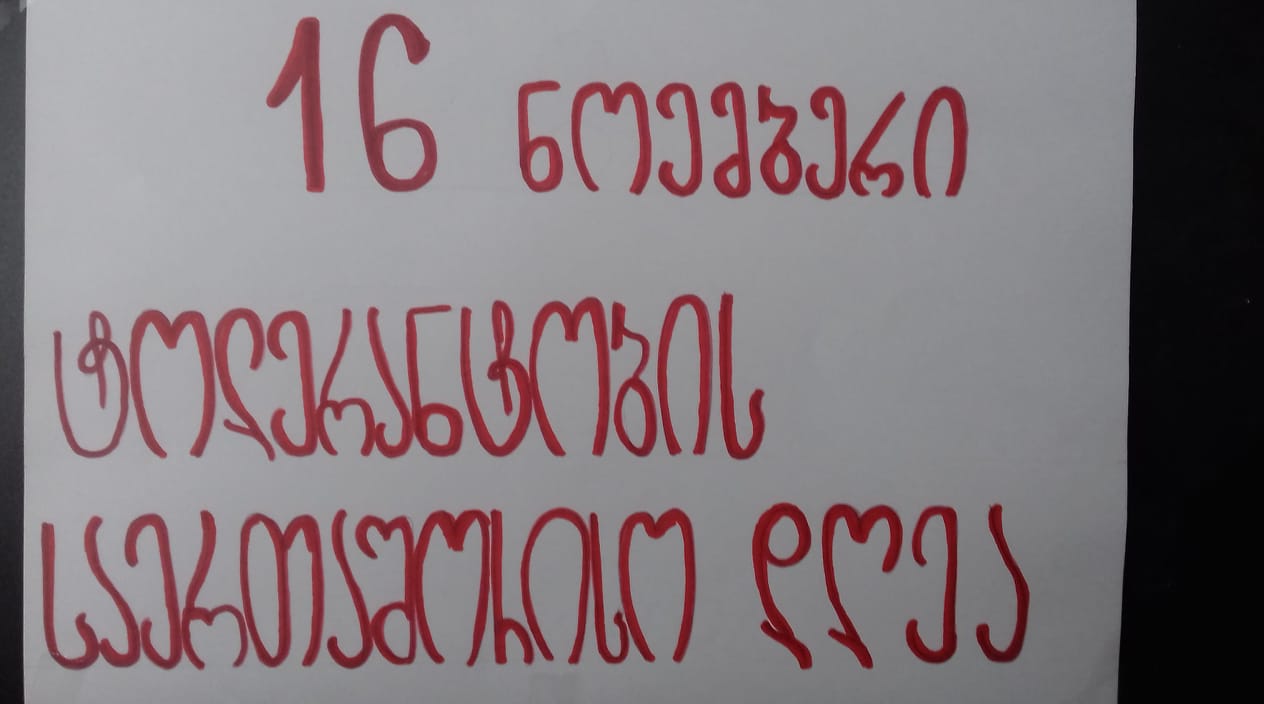 16 ნოემბერი
ტოლერანტობის
საერთაშორისო დღეა